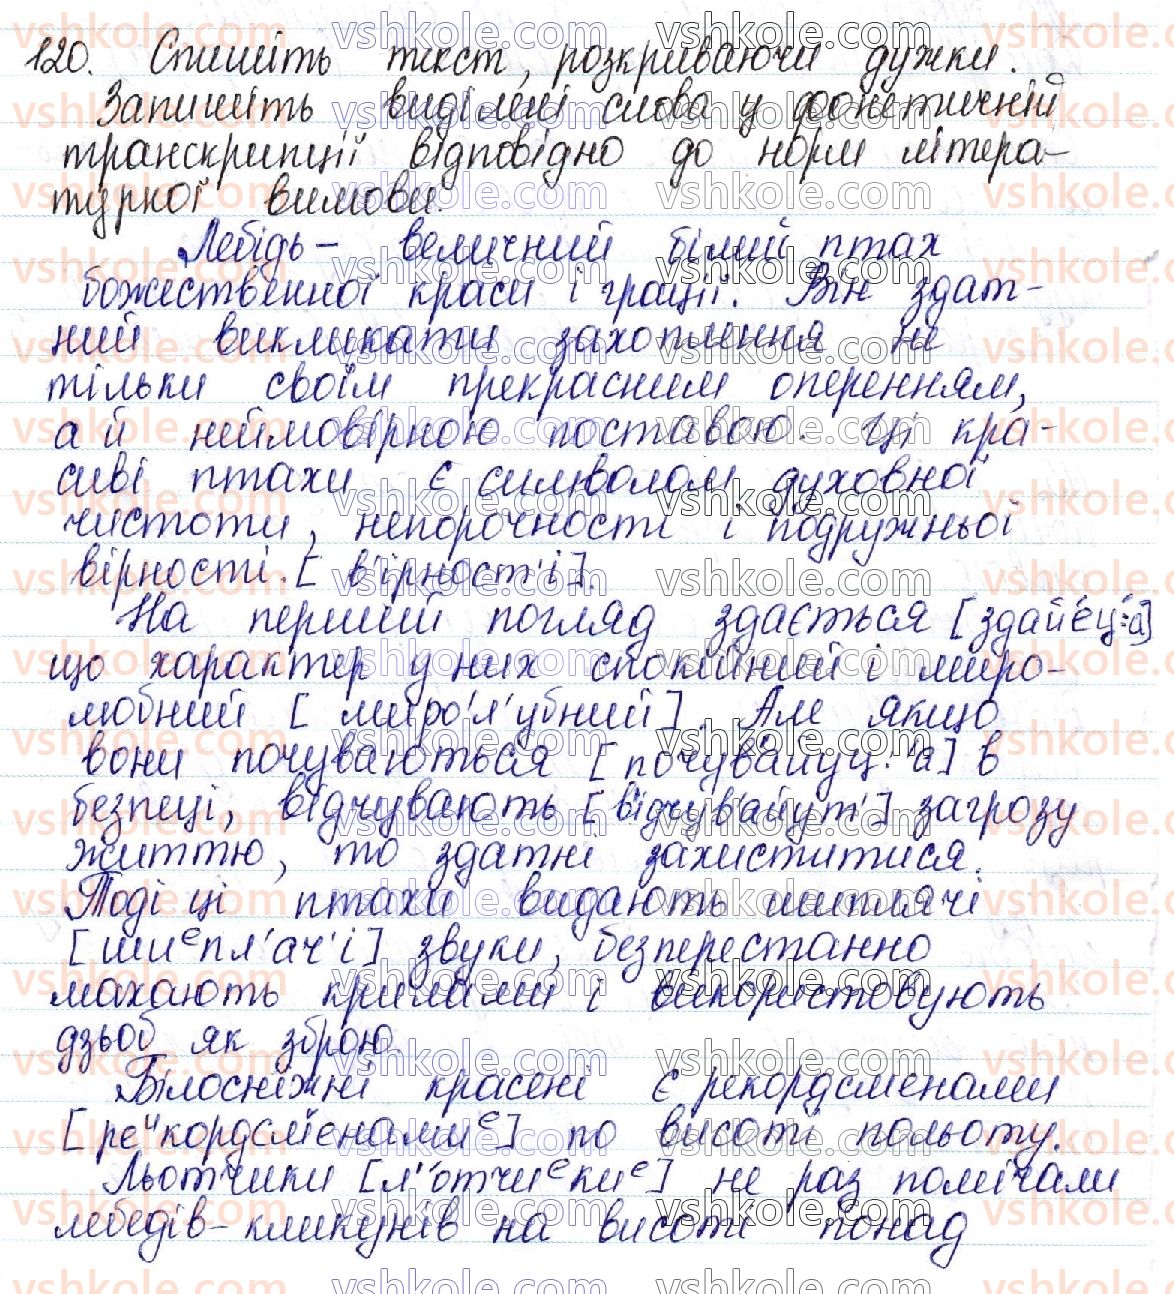 120. Спишіть текст, розкриваючи дужки.
Запишіть виділені слова у фонетичній
транскрипції відповідно до норм літера-
турної вимови.
Лебідь – величний білий птах
божественної краси і грації. Він здат-
ний викликати захоплення не
тільки своїм прекрасним оперенням,
а й неймовірною поставою. Ці кра-
сиві птахи є символом духовної
чистоти, непорочності і подружньої
вірності. [в'ірност'і].
На перший погляд здається [здайец':а]
що характер у них спокійний і миро-
любний [миро'л'убний]. Але якщо
вони почуваються [почувайуц:'а] в
безпеці, відчувають [відчувайут'] загрозу
життю, то здатні захиститися.
Тоді ці птахи видають шиплячі
[шиᵉпл'ач'і] звуки, безперестанно
махають крилами і використовують
дзьоб як зброю.
Білосніжні красені є рекордсменами
[реᶦкордсменамиᵉ] по висоті польоту.
Льотчики [л'отчиᵉкиᵉ] не раз помічали
лебедів-кликунів на висоті понад
vshkole.com